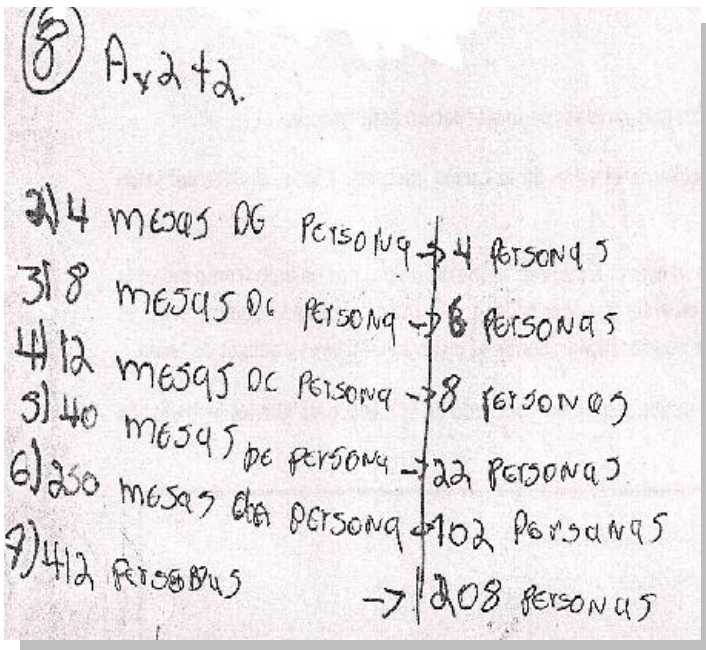 8 A x 2 + 2.
2) 4 mesas DE Persona → 4 Personas
3) 8 mesas De Persona → 6 Personas
4) 12 mesas DE Persona → 8 Personas
5) 40 mesas DE Persona → 22 Personas
6) 250 mesas Persona → 102 Personas
7) 412 → 208 Personas